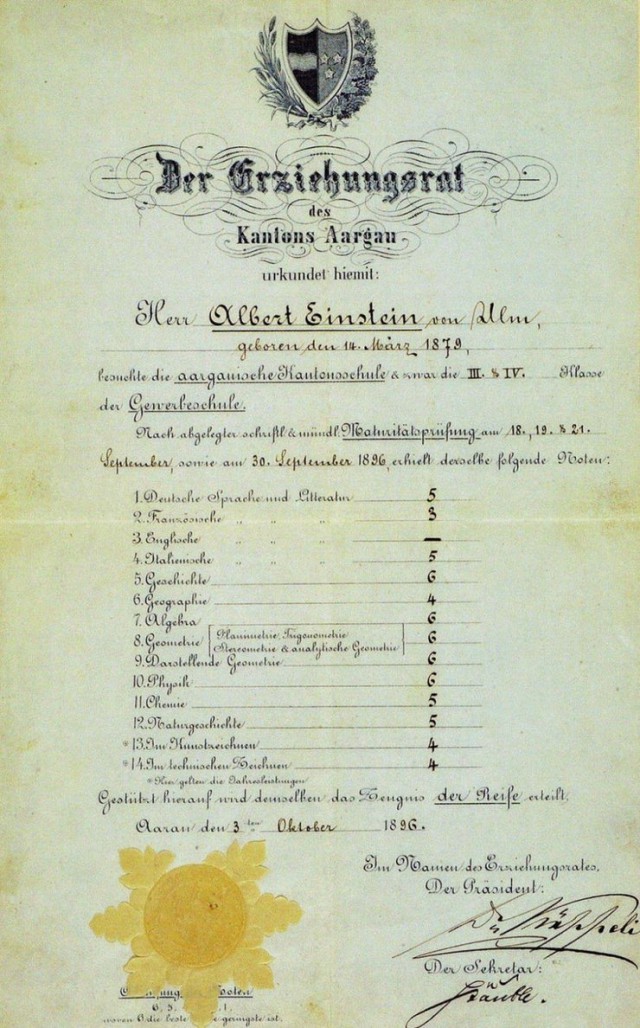 Der Erziehungsrat
des
Kantons Aargau
urkundet hiemit:
Herr Albert Einstein von Ulm,
geboren den 14. März 1879,
besuchte die aargauische Kantonsschule & zwar die III. & IV. Klasse
der Gewerbeschule.
Nach abgelegter schriftl. & mündl. Maturitätsprüfung am 18., 19. & 21.
September, sowie am 30. September 1896, erhielt derselbe folgende Noten:
1. Deutsche Sprache und Litteratur 5
2. Französische „ „ „ 3
3. Englische „ „ „ —
4. Italienische „ „ „ 5
5. Geschichte 6
6. Geographie 4
7. Algebra 6
8. Geometrie [Planimetrie, Trigonometrie
Stereometrie & analytische Geometrie] 6
9. Darstellende Geometrie 6
10. Physik 6
11. Chemie 5
12. Naturgeschichte 5
* 13. Im Kunstzeichnen 4
* 14. Im technischen Zeichnen 4
* Hier gelten die Jahresleistungen
Gestützt hierauf wird demselben das Zeugnis der Reife erteilt.
Aarau den 3ten Oktober 1896.
Im Namen des Erziehungsrates,
Der Präsident:
Der Sekretär:
Stäuble.
Noten
6. 5. 1.
wovon 6 die beste geringste ist.